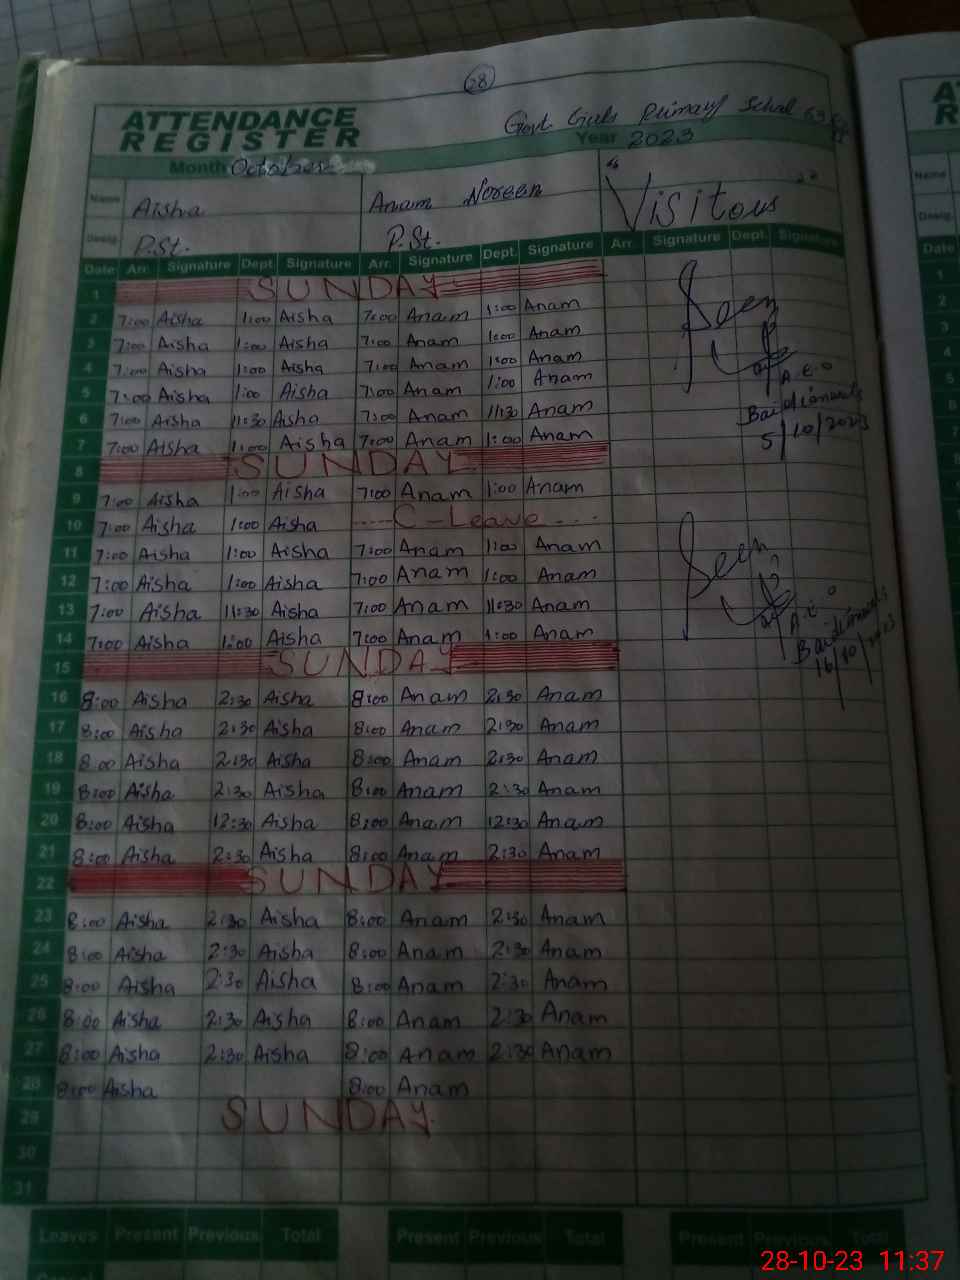 28
ATTENDANCE
REGISTER
Govt Girls Primary School 63
Month October
Year 2023
Name Aisha Anam Noreen "Visitors"
Desig. P.St. P.St.
Date Arr. Signature Dept. Signature Arr. Signature Dept. Signature Arr. Signature Dept. Signature
1 SUNDAY
2 7:00 Aisha 1:00 Aisha 7:00 Anam 1:00 Anam
3 7:00 Aisha 1:00 Aisha 7:00 Anam 1:00 Anam
4 7:00 Aisha 1:00 Aisha 7:00 Anam 1:00 Anam
5 7:00 Aisha 1:00 Aisha 7:00 Anam 1:00 Anam
6 7:00 Aisha 11:30 Aisha 7:00 Anam 11:30 Anam
7 7:00 Aisha 1:00 Aisha 7:00 Anam 1:00 Anam
Seen
A.E.O
5/10/2023
8 SUNDAY
9 7:00 Aisha 1:00 Aisha 7:00 Anam 1:00 Anam
10 7:00 Aisha 1:00 Aisha -----C-Leave---
11 7:00 Aisha 1:00 Aisha 7:00 Anam 1:00 Anam
12 7:00 Aisha 1:00 Aisha 7:00 Anam 1:00 Anam
13 7:00 Aisha 11:30 Aisha 7:00 Anam 11:30 Anam
14 7:00 Aisha 1:00 Aisha 7:00 Anam 1:00 Anam
Seen
A.E.O
16/10/2023
15 SUNDAY
16 8:00 Aisha 2:30 Aisha 8:00 Anam 2:30 Anam
17 8:00 Aisha 2:30 Aisha 8:00 Anam 2:30 Anam
18 8:00 Aisha 2:30 Aisha 8:00 Anam 2:30 Anam
19 8:00 Aisha 2:30 Aisha 8:00 Anam 2:30 Anam
20 8:00 Aisha 12:30 Aisha 8:00 Anam 12:30 Anam
21 8:00 Aisha 2:30 Aisha 8:00 Anam 2:30 Anam
22 SUNDAY
23 8:00 Aisha 2:30 Aisha 8:00 Anam 2:30 Anam
24 8:00 Aisha 2:30 Aisha 8:00 Anam 2:30 Anam
25 8:00 Aisha 2:30 Aisha 8:00 Anam 2:30 Anam
26 8:00 Aisha 2:30 Aisha 8:00 Anam 2:30 Anam
27 8:00 Aisha 2:30 Aisha 8:00 Anam 2:30 Anam
28 8:00 Aisha 8:00 Anam
29 SUNDAY
30
31
Leaves Present Previous Total Present Previous Total Present Previous Total
Name
Desig.
Date
1
2
3
4
5
6
7
28-10-23 11:37